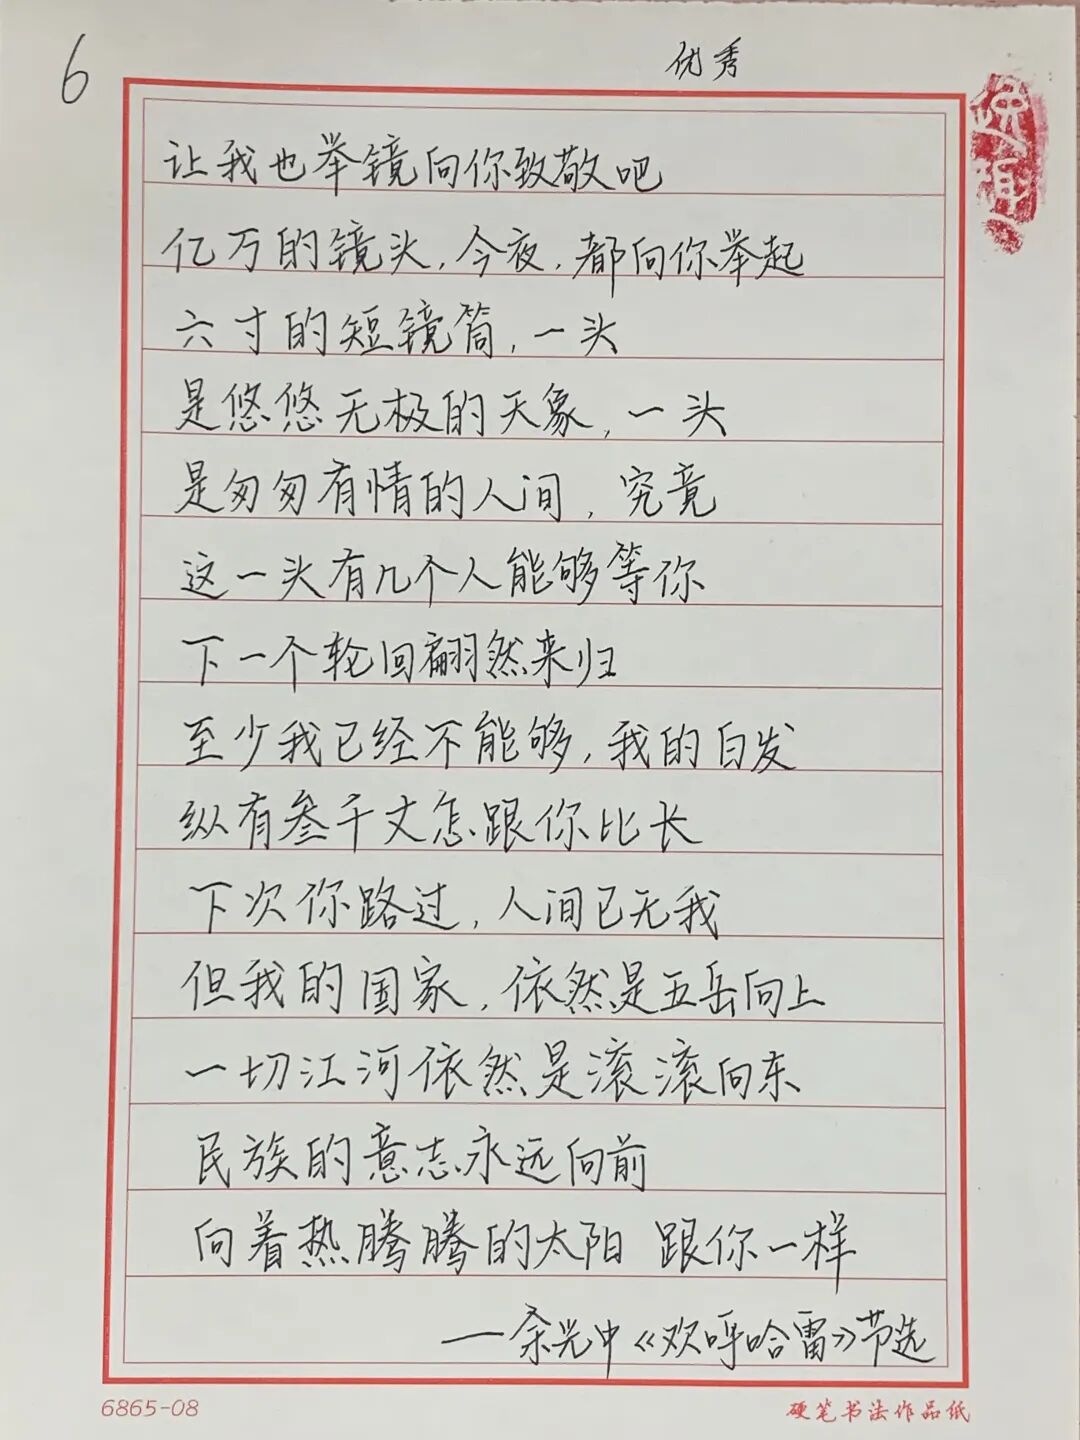 6
优秀
让我也举镜向你致敬吧
亿万的镜头，今夜，都向你举起
六寸的短镜筒，一头
是悠悠无极的天象，一头
是匆匆有情的人间，究竟
这一头有几个人能够等你
下一个轮回翩然来归
至少我已经不能够，我的白发
纵有叁千丈怎跟你比长
下次你路过，人间已无我
但我的国家，依然是五岳向上
一切江河依然是滚滚向东
民族的意志永远向前
向着热腾腾的太阳 跟你一样
——余光中《欢呼哈雷》节选
6865-08
硬笔书法作品纸